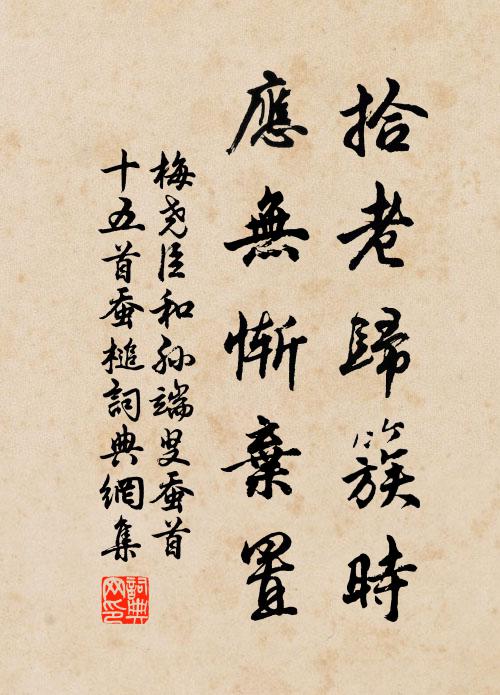 拾老歸簇時
應無慚棄置
梅尧臣和孙端叟蚕首
十五首蚕槌詞典網集
詞典网印